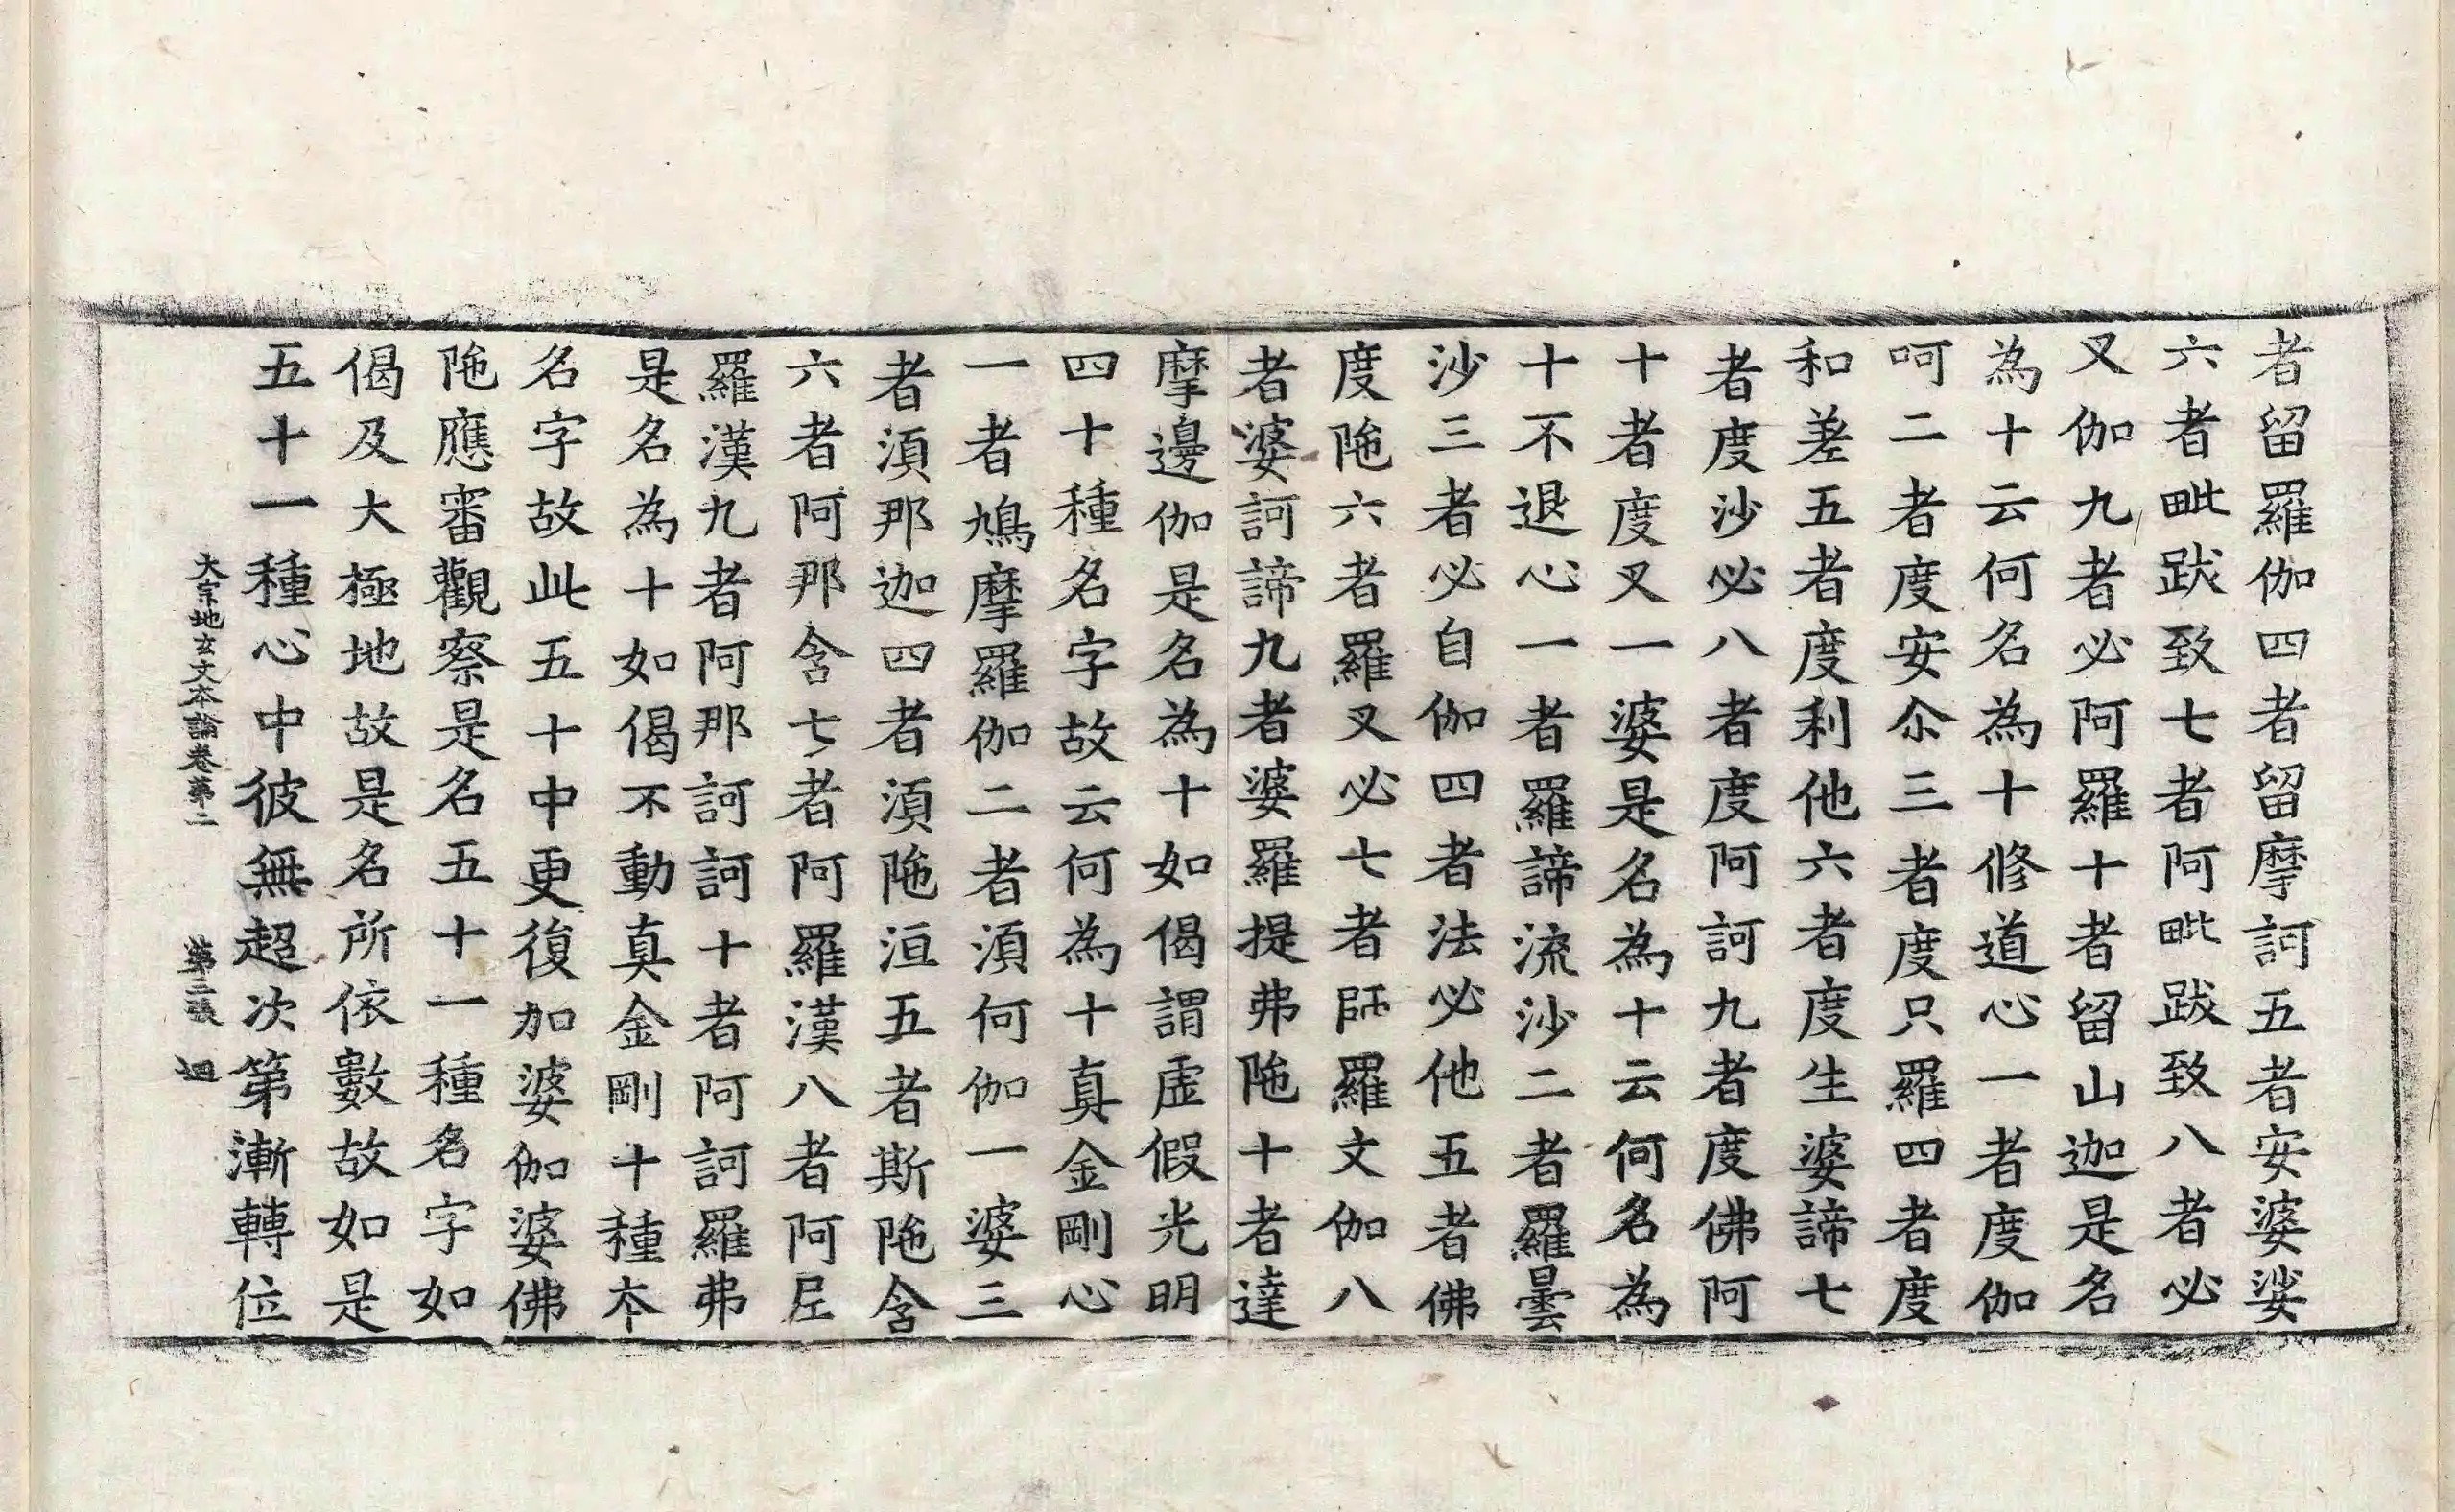 者留羅伽四者留摩訶五者安婆娑
六者毗跋致七者阿毗跋致八者必
叉伽九者必阿羅十者留山迦是名
為十云何名為十修道心一者度伽
呵二者度安尒三者度只羅四者度
和差五者度利他六者度生婆諦七
者度沙必八者度阿訶九者度佛阿
十者度度叉一婆是名為十云何名為
十不退心一者羅諦流沙二者羅曇
沙三者必自伽四者法必他五者佛
度陁六者羅叉必七者師羅文伽八
者婆訶諦九者婆羅提弗陁十者達
摩邊伽是名為十如偈謂虛假光明
四十種名字故云何為十真金剛心
一者鳩摩羅伽二者須何伽一婆三
者須那迦四者須陁洹五者斯陁含
六者阿那含七者阿羅漢八者阿尼
羅漢九者阿那訶訶十者阿訶羅弗
是名為十如偈不動真金剛十種夲
名字故此五十中更復加婆伽婆佛
陁應審觀察是名五十一種名字如
偈及大極地故是名所依數故如是
五十一種心中彼無超次第漸轉位
大宗地玄文夲論卷第二 第三張 迴